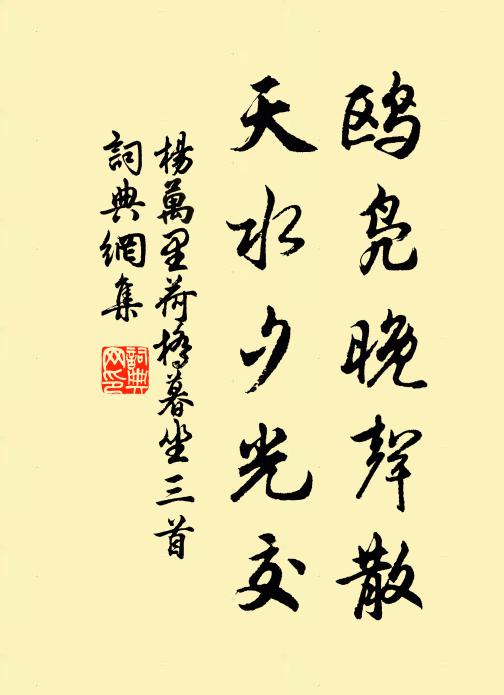 鸥凫晚声散
天水夕光交
楊萬里荷橋暮坐三首
詞典網集
詞典
网印